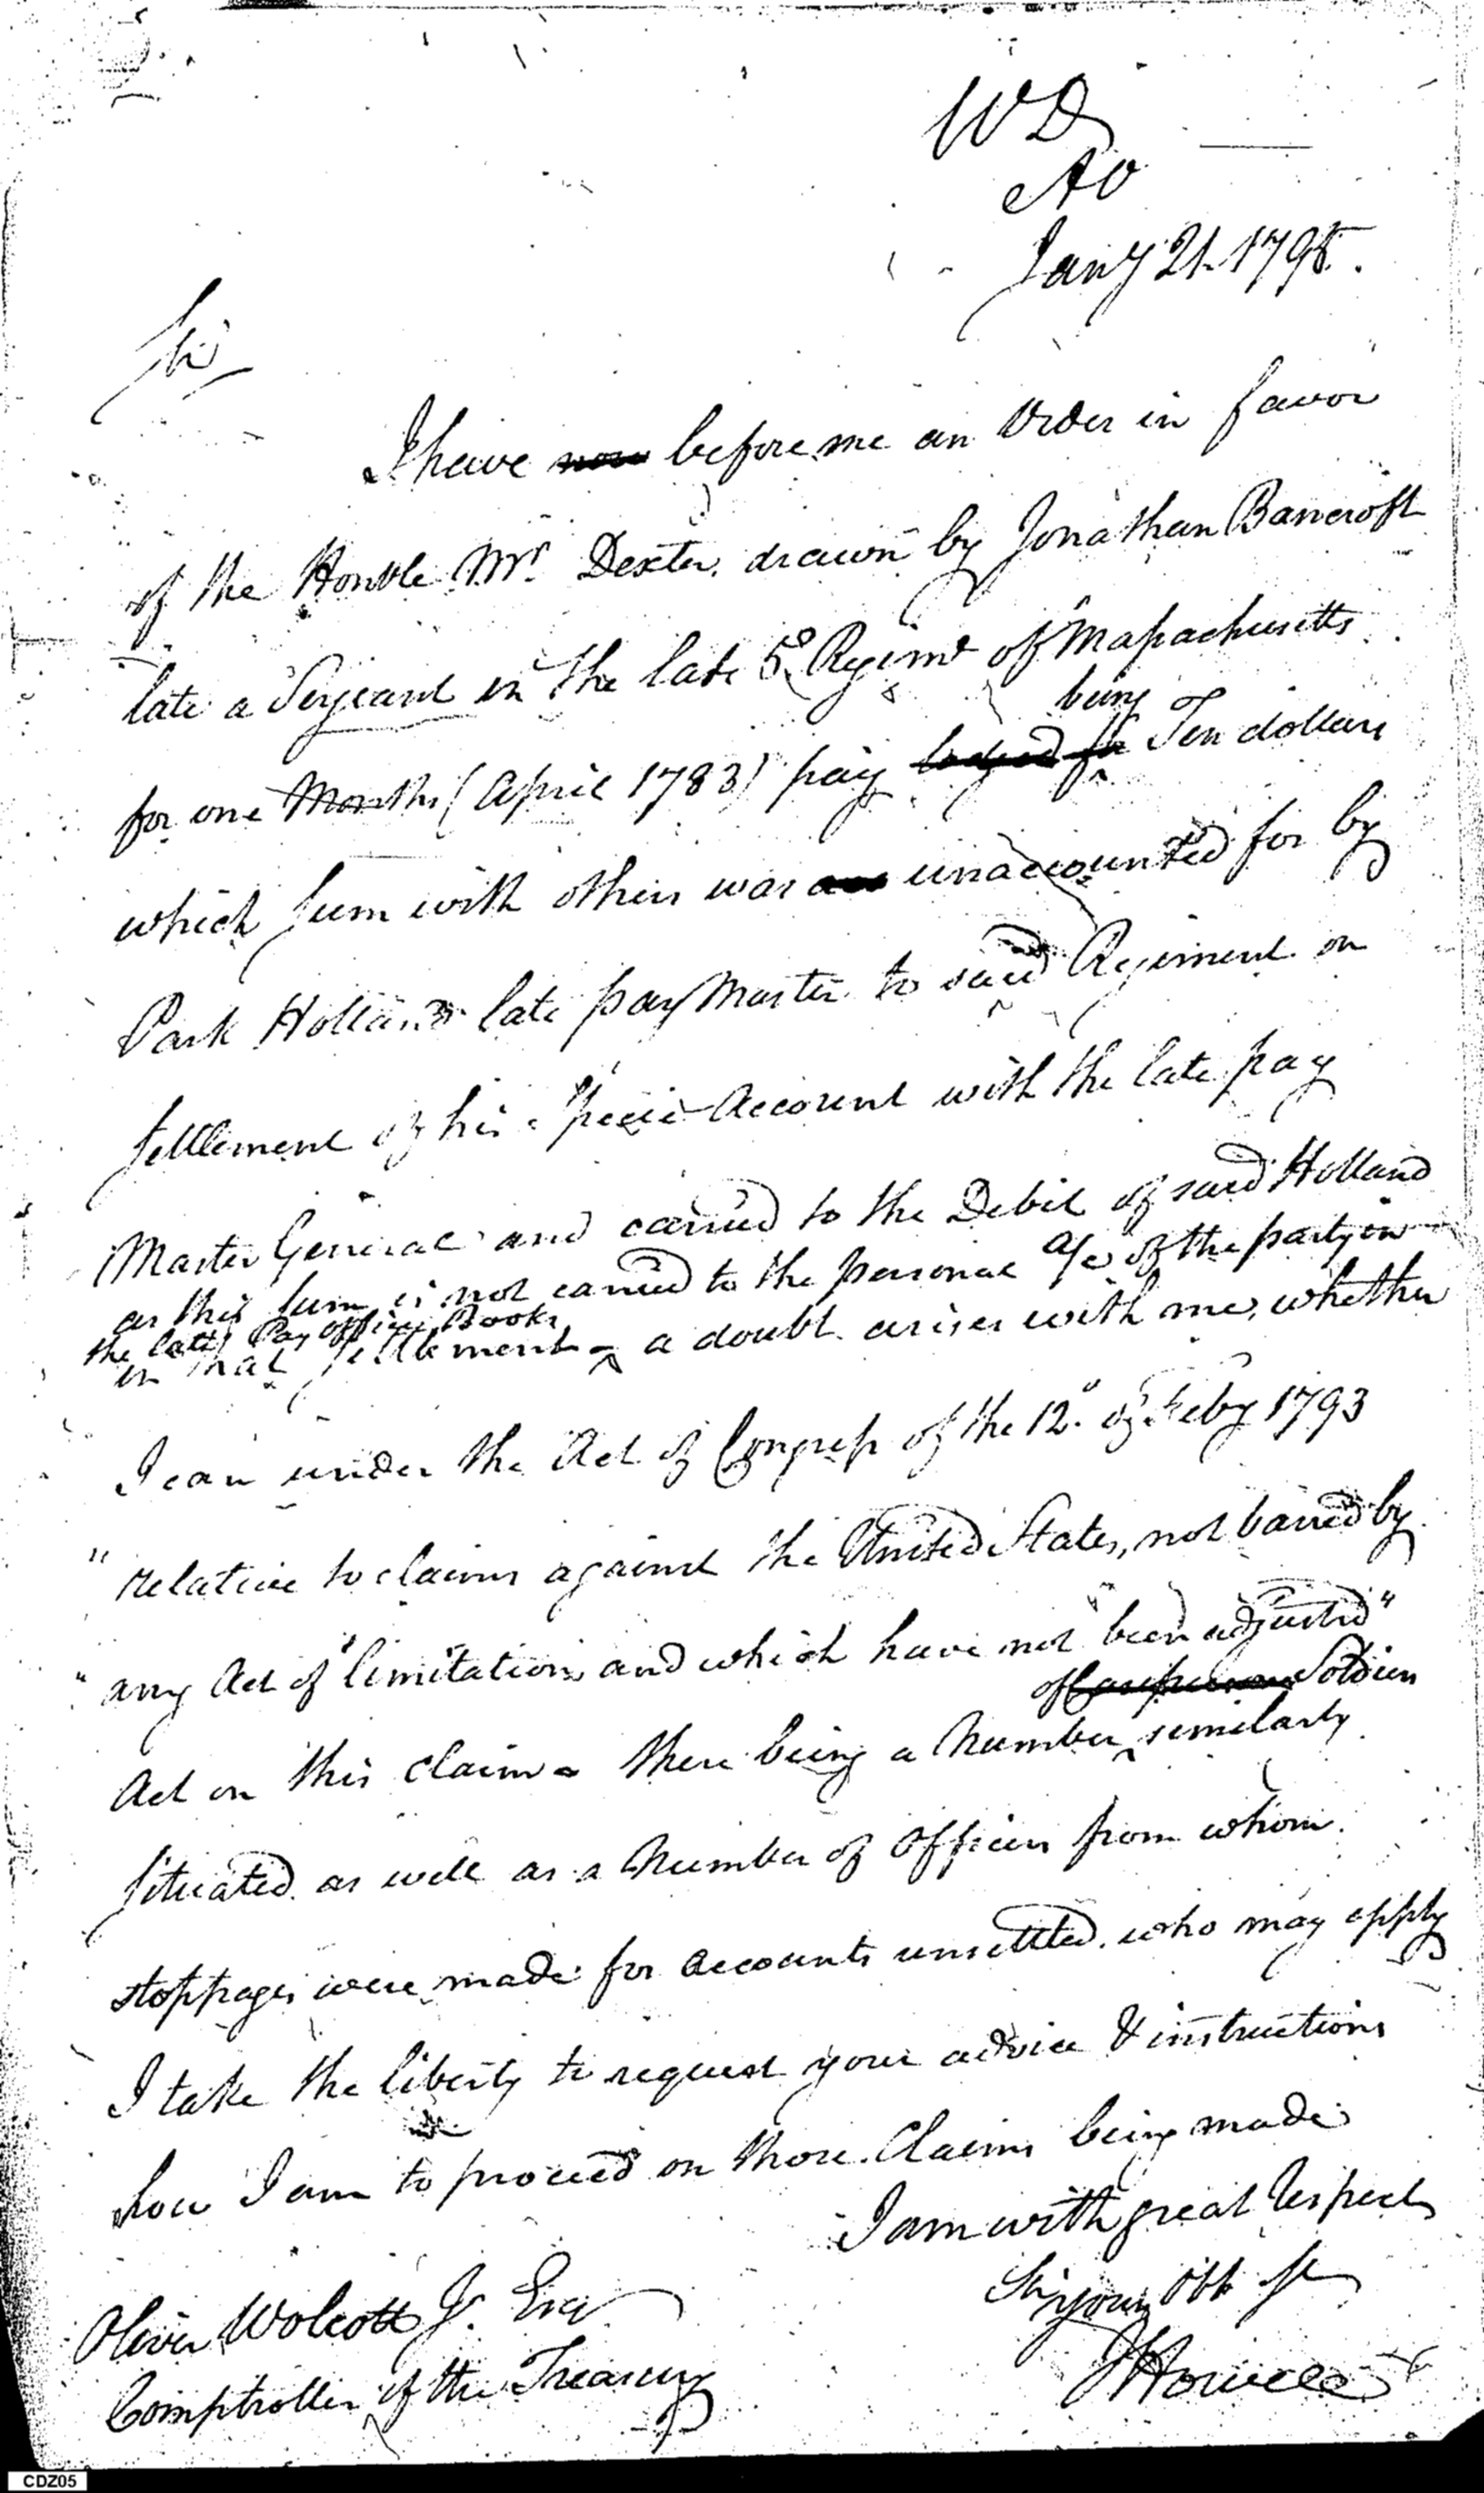 WD
AO
Jany 21. 1795.
Sir
I have now before me an Order in favor
of the Honble Mr. Dexter drawn by Jonathan Bancroft
late a Serjeant in the late 5th Regimt of Massachusetts
being
for one Months (April 1783) pay lodged for Ten dollars
which sum with others was unaccounted for by
Park Holland late pay Master to said Regiment on
settlement of his specie Account with the late pay
Master General and carried to the Debit of said Holland
as this sum is not carried to the personal a/c of the party in
the late Pay Office Books
in that settlement - a doubt arises with me, whether
I can under the Act of Congress of the 12th of Feby 1793
"relative to claims against the United States, not barred by
"any Act of limitation and which have not been adjusted"
of Soldiers
Act on this claim - there being a Number similarly
situated as well as a Number of Officers from whom
stoppages were made for accounts unsettled. who may apply
I take the liberty to request your advice & instructions
how I am to proceed on those Claims being made
I am with great Respect
Sir your Obt St
JHowell
Oliver Wolcott Jr. Esq
Comptroller of the Treasury
CDZ05